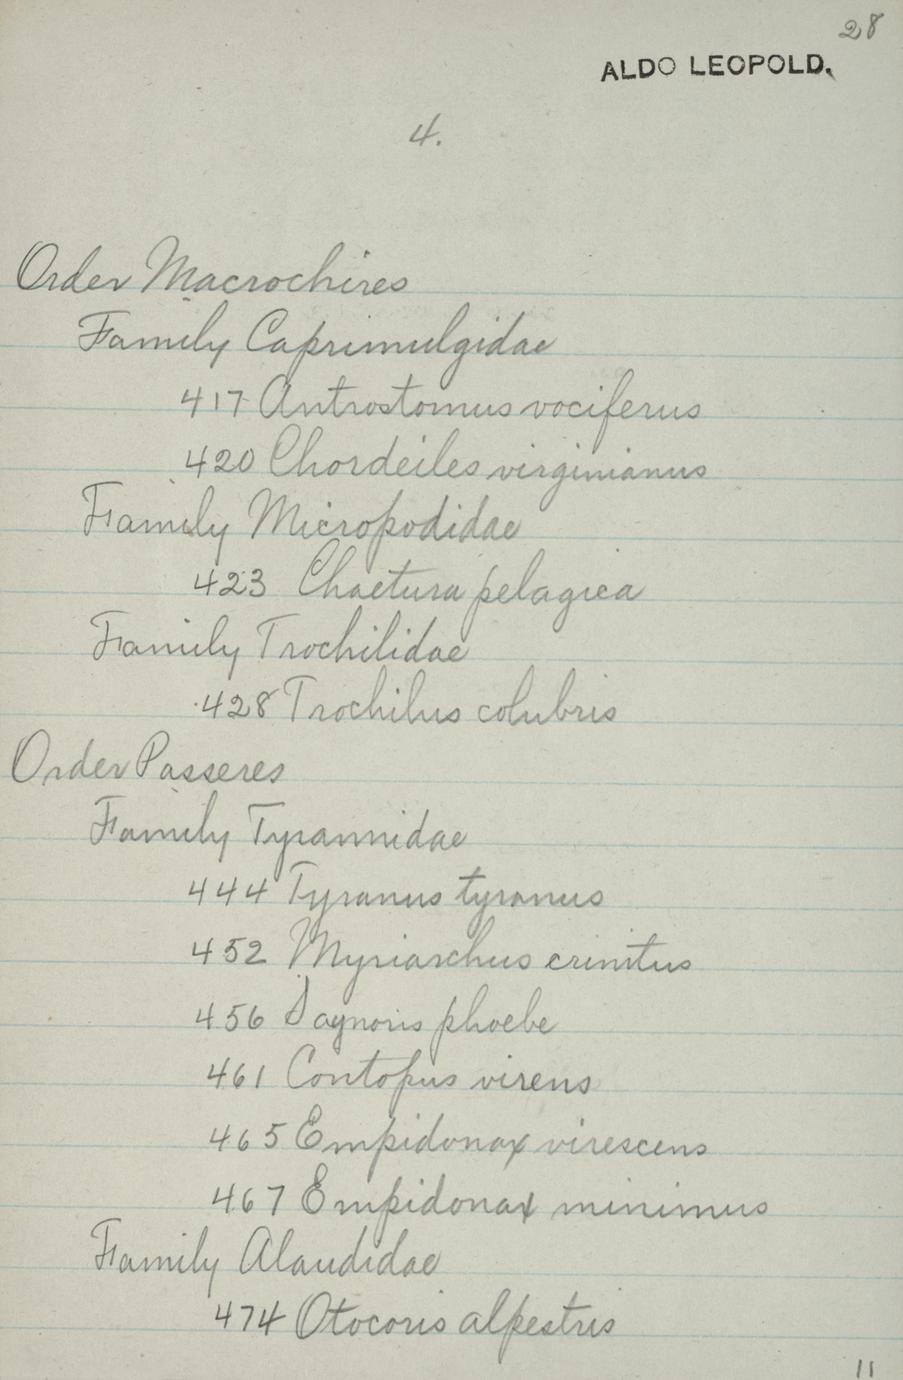 28
ALDO LEOPOLD.
4.
Order Macrochires
Family Caprimulgidae
417 Antrostomus vociferus
420 Chordeiles virginianus
Family Micropodidae
423 Chaetura pelagica
Family Trochilidae
428 Trochilus colubris
Order Passeres
Family Tyrannidae
444 Tyranus tyranus
452 Myriarchus crinitus
456 Saynoris phoebe
461 Contopus virens
465 Empidonax virescens
467 Empidonax minimus
Family Alaudidae
474 Otocoris alpestris
11